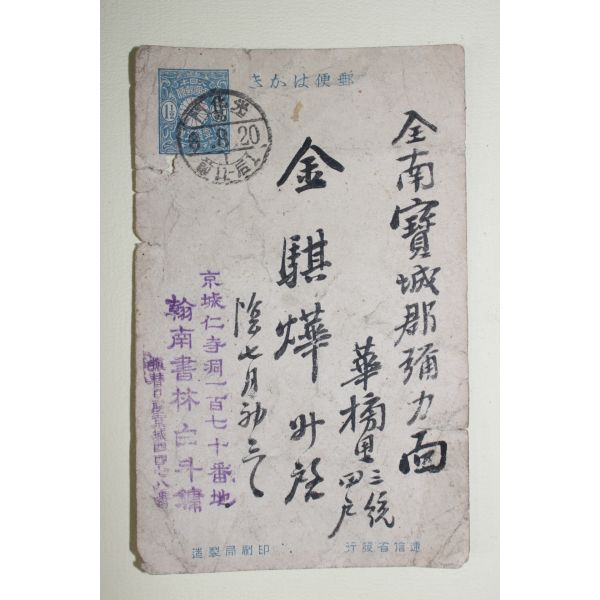 郵便はかき
全南寶城郡彌力面
華橋里三統
四戶
金騏燁
陰七月初三
京城仁寺洞一百七十番地
翰南書林白斗鏞
1½
光化門
9.8.20
逓信省發行
印刷局製造